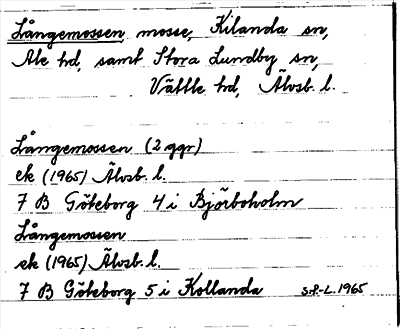 Långemossen, mosse, Kilanda sn,
Ale hd, samt Stora Lundby sn,
Vättle hd, Älvsb. l.
Långemossen (2 ggr)
ek (1965) Älvsb. l.
7 B Göteborg 4 i Björboholm
Långemossen
ek (1965) Älvsb. l.
7 B Göteborg 5 i Kollanda S.P-L. 1965